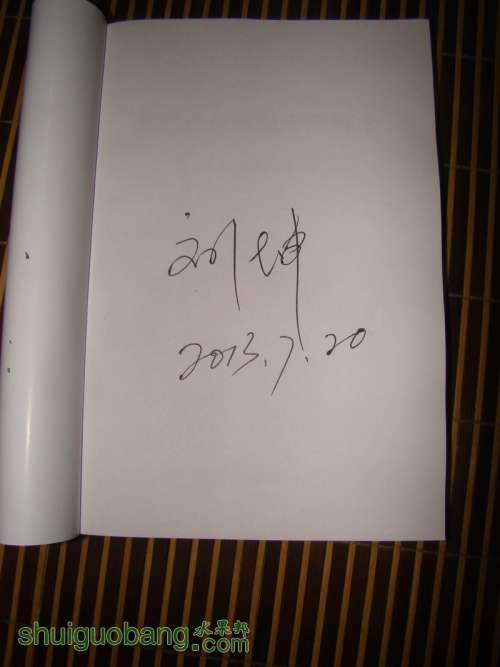 刘坤
2013.7.20
水果邦
shuiguobang.com